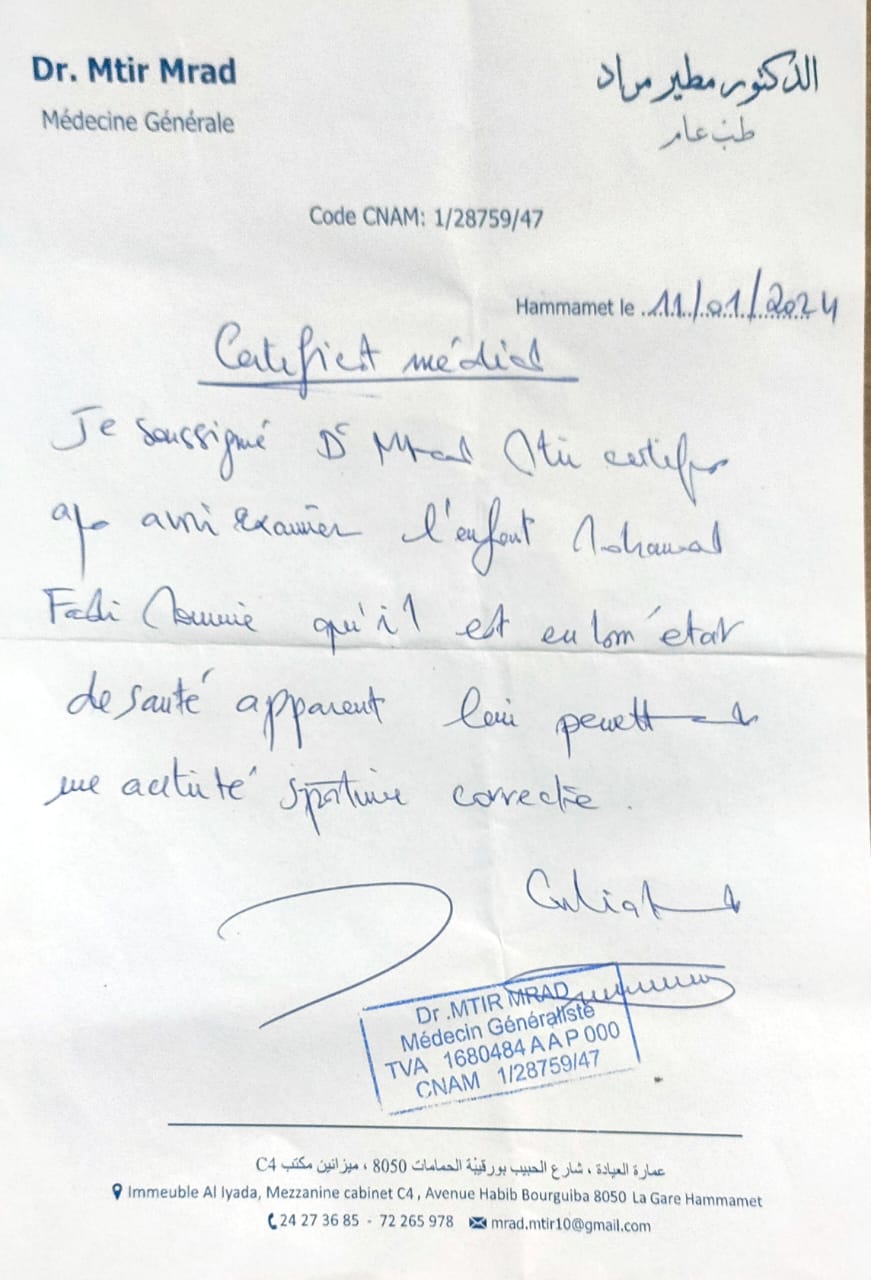 Dr. Mtir Mrad
الدكتور مطير مراد
Médecine Générale
طب عام
Code CNAM: 1/28759/47
Hammamet le 11/01/2024
Certificat médical
Je soussigné Dr Mrad Mtir certifie
après avoir examiner l'enfant Mohamed
Fadi qu'il est en bon état
de santé apparent lui permettant
une activité sportive correcte.
Dr .MTIR MRAD
Médecin Généraliste
TVA 1680484 A A P 000
CNAM 1/28759/47
عمارة العيادة ، شارع الحبيب بورقيبة الحمامات 8050 ، ميزانين مكتب C4
Immeuble Al Iyada, Mezzanine cabinet C4 , Avenue Habib Bourguiba 8050 La Gare Hammamet
24 27 36 85 - 72 265 978 mrad.mtir10@gmail.com